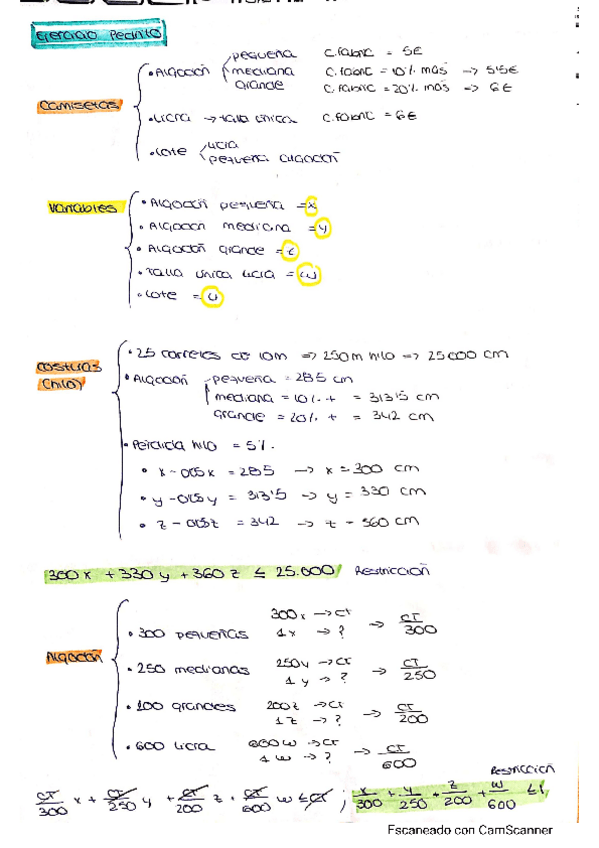 Ejercicio Pedrito
Camisetas
• Algodón
pequeña C. Fabric = 5€
mediana C. Fabric = 10% más → 5'5€
grande C. Fabric = 20% más → 6€
• Licra → talla única C. Fabric = 6€
• Lote
licra
pequeña algodón
Variables
• Algodón pequeña = x
• Algodón mediana = y
• Algodón grande = z
• Talla única licra = w
• Lote = u
Costuras (hilo)
• 25 carretes de 10m => 250m hilo => 25000 cm
• Algodón
pequeña = 285 cm
mediana = 10% + = 313'5 cm
grande = 20% + = 342 cm
• Perdida hilo = 5%.
• x - 0'05x = 285 → x = 300 cm
• y - 0'05y = 313'5 → y = 330 cm
• z - 0'05z = 342 → z = 360 cm
300x + 330y + 360z ≤ 25.000 Restricción
Algodón
• 300 pequeñas 300x → CT
1x → ? → CT/300
• 250 medianas 250y → CT
1y → ? → CT/250
• 200 grandes 200z → CT
1z → ? → CT/200
• 600 licra 600w → CT
1w → ? → CT/600
Restricción
CT/300 x + CT/250 y + CT/200 z + CT/600 w ≤ CT ; x/300 + y/250 + z/200 + w/600 ≤ 1
Escaneado con CamScanner